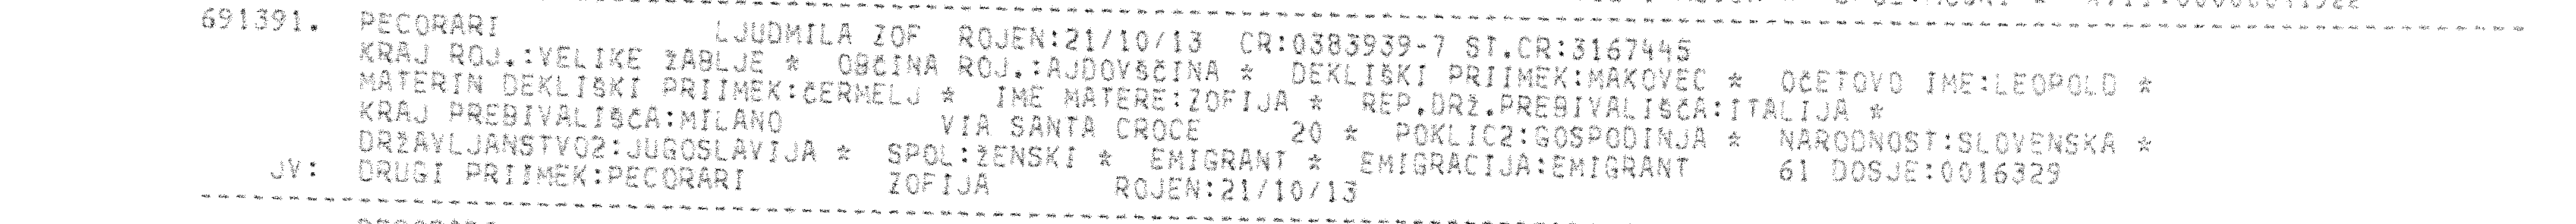 691391. PECORARI LJUDMILA ZOF ROJEN:21/10/13 CR:0383939-7 ST.CR:3167445
KRAJ ROJ.:VELIKE ŽABLJE * OBČINA ROJ.:AJDOVŠČINA * DEKLIŠKI PRIIMEK:MAKOVEC * OČETOVO IME:LEOPOLD *
MATERIN DEKLIŠKI PRIIMEK:ČERMELJ * IME MATERE:ZOFIJA * REP.DRŽ.PREBIVALIŠČA:ITALIJA *
KRAJ PREBIVALIŠČA:MILANO VIA SANTA CROCE 20 * POKLIC2:GOSPODINJA * NARODNOST:SLOVENSKA *
DRŽAVLJANSTVO2:JUGOSLAVIJA * SPOL:ŽENSKI * EMIGRANT * EMIGRACIJA:EMIGRANT 61 DOSJE:0016329
JV: DRUGI PRIIMEK:PECORARI ZOFIJA ROJEN:21/10/13